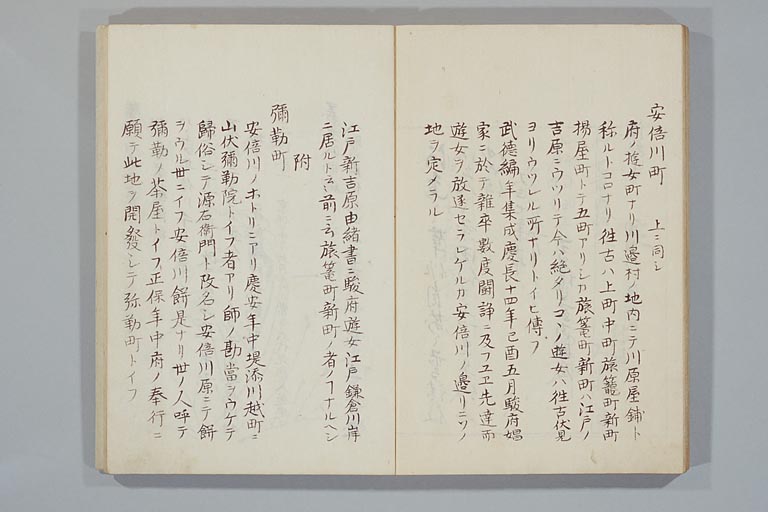 安倍川町　上ニ同シ
府ノ遊女町ナリ川邉村ノ地内ニテ川原屋鋪ト
称ルトコロナリ往古ハ上町中町旅籠町新町
揚屋町トテ五町アリシカ旅篭町新町ハ江戸ノ
吉原ニウツリテ今ハ絶タリコヽノ遊女ハ往古伏見
ヨリウツレル所ナリトイヒ傳フ
武德編年集成慶長十四年己酉五月駿府娼
家ニ於テ雑卒數度鬪諍ニ及フユヱ先達而
遊女ヲ放逐セラレケルカ安倍川ノ邉リニソノ
地ヲ定メラル
江戸新吉原由緒書ニ駿府遊女江戸鎌倉川岸
ニ居ルト云前ニ云旅篭町新町ノ者ノコナルヘシ
附
彌勒町
安倍川ノホトリニアリ慶安年中堤添川越町ニ
山伏彌勒院トイフ者アリ師ノ勘當ヲウケテ
歸俗シテ源右衛門ト改名シ安倍川原ニテ餅
ヲウル世ニイフ安倍川餅是ナリ世ノ人呼テ
彌勒ノ茶屋トイフ正保年中府ノ奉行ニ
願テ此地ヲ開發シテ弥勒町トイフ